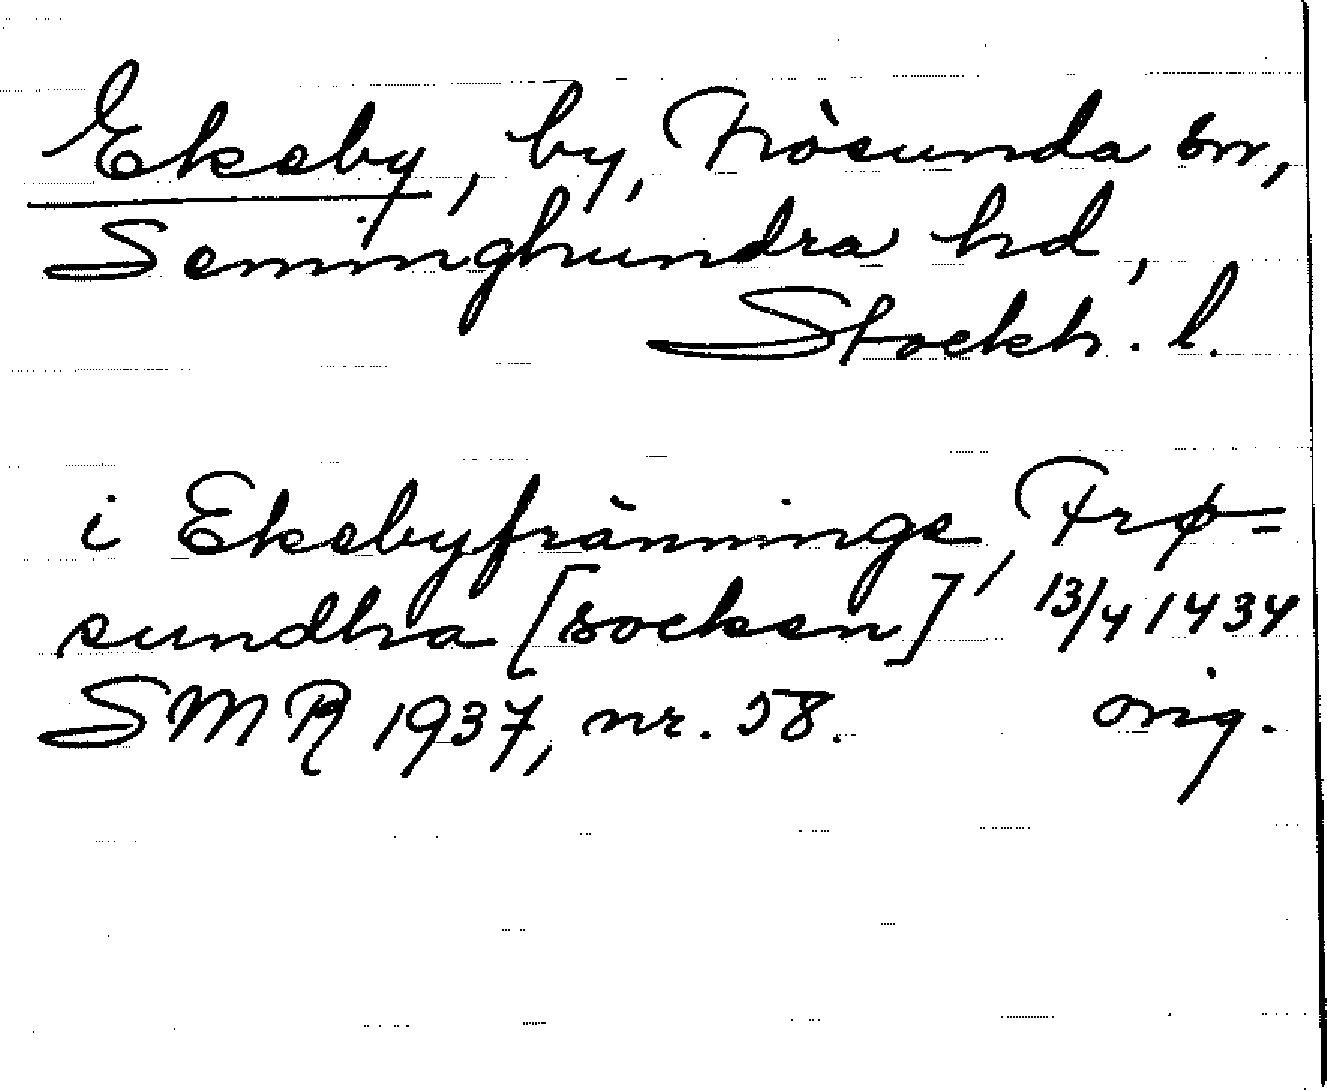 Ekeby, by, Frösunda sn,
Seminghundra hd,
Stockh. l.
i Ekebyfränninge, Frø=
sundha [socken] 13/4 1434
SMR 1937, nr. 58. orig.